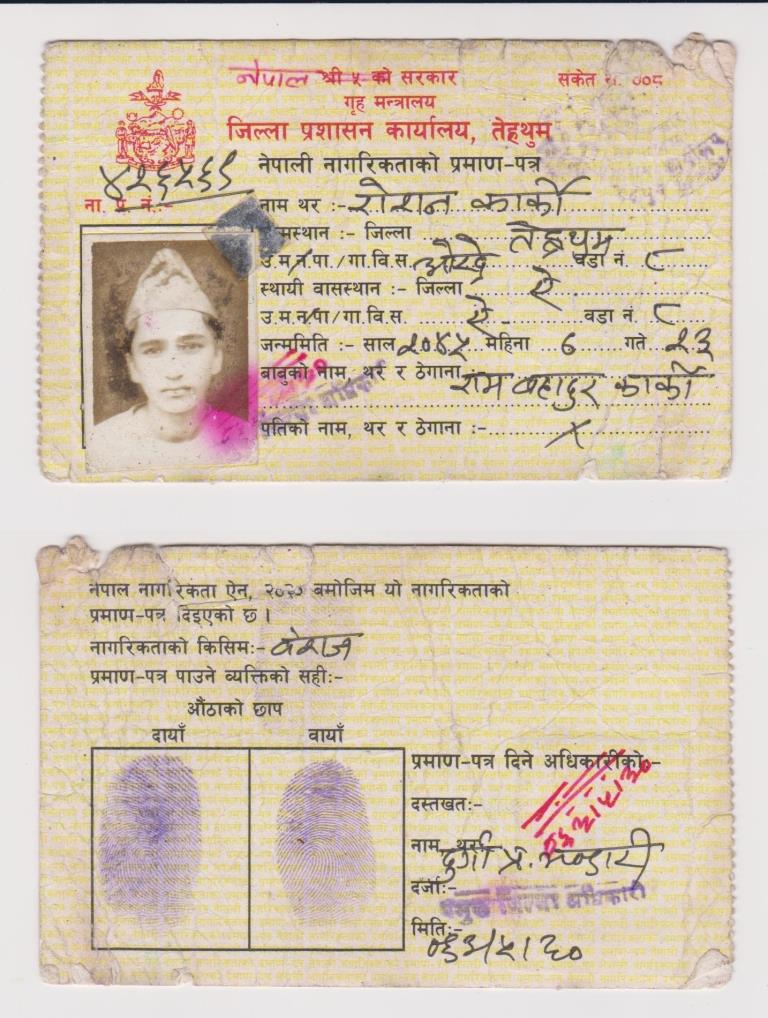 नेपाल श्री ५ को सरकार
संकेत नं. ००८
गृह मन्त्रालय
जिल्ला प्रशासन कार्यालय, तेह्रथुम
नेपाली नागरिकताको प्रमाण-पत्र
ना. प्र. नं.:-
नाम थर :- रोशन कार्की
जन्मस्थान :- जिल्ला तेह्रथुम
उ.म.न.पा./गा.वि.स. वडा नं. ८
स्थायी वासस्थान :- जिल्ला ऐ
उ.म.न.पा/गा.वि.स. ऐ वडा नं. ८
जन्ममिति :- साल २०४५ महिना ६ गते २३
बाबुको नाम, थर र ठेगाना राम बहादुर कार्की
पतिको नाम, थर र ठेगाना :- X
नेपाल नागरिकता ऐन, बमोजिम यो नागरिकताको
प्रमाण-पत्र दिइएको छ ।
नागरिकताको किसिम:- वंशज
प्रमाण-पत्र पाउने व्यक्तिको सही:-
औंठाको छाप
दायाँ बायाँ
प्रमाण-पत्र दिने अधिकारीको:-
दस्तखत:-
नाम थर: दुर्गा प्र. भण्डारी
दर्जा:- प्रमुख जिल्ला अधिकारी
मिति:-